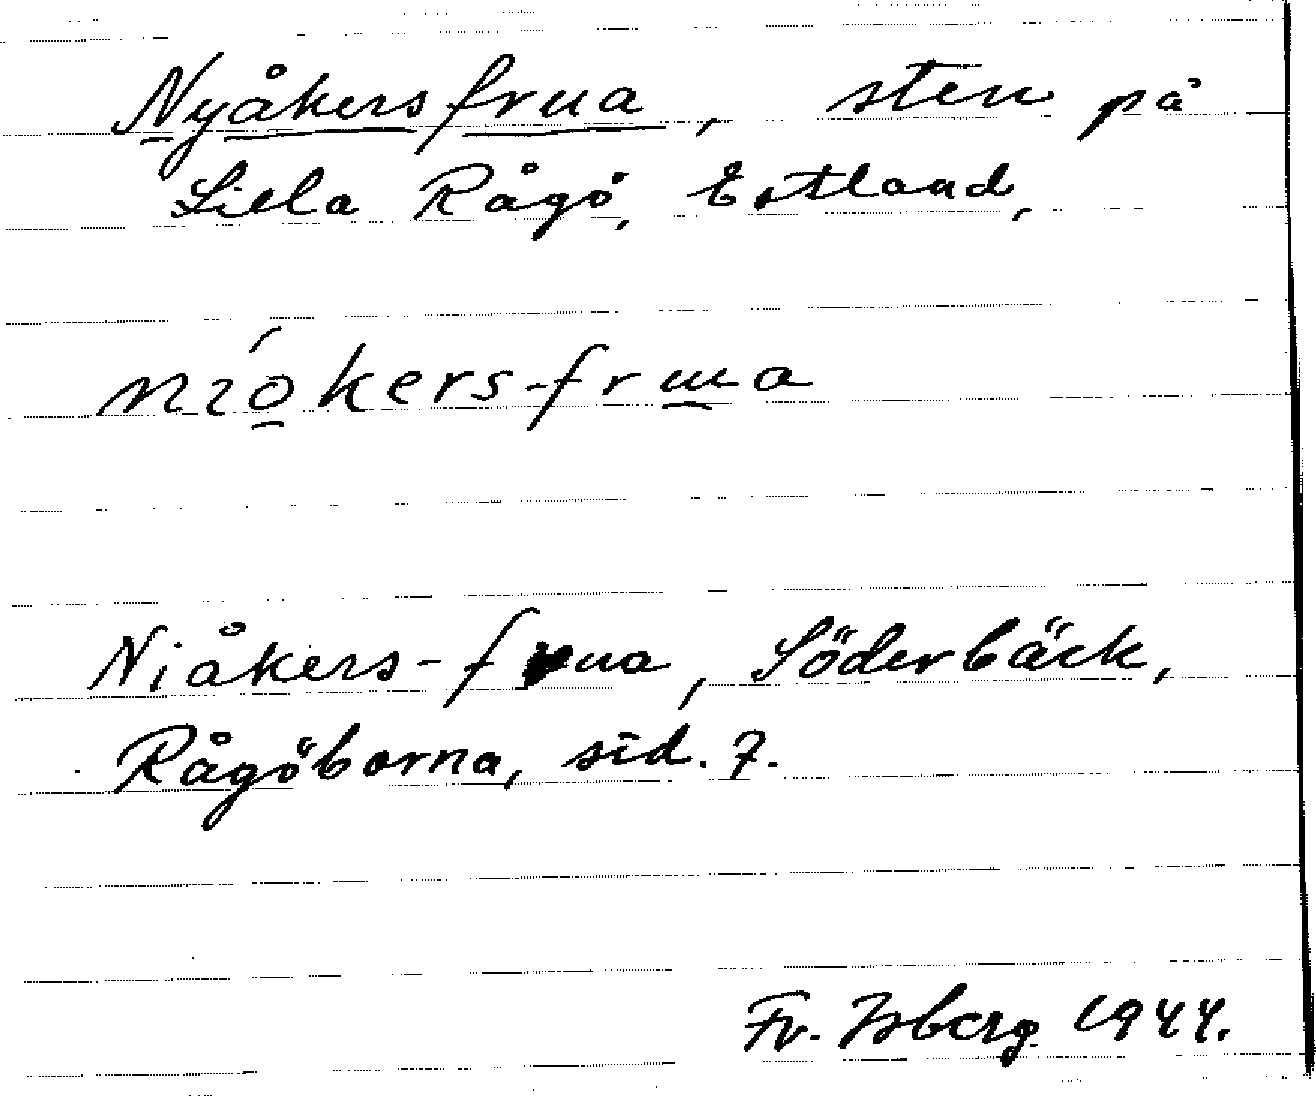 Nyåkersfrua, sten på
Lilla Rågö, Estland,
nıó̱kers-frɯ̱a
Niåkers-frua, Söderbäck,
Rågöborna, sid. 7.
Fr. Isberg 1944.